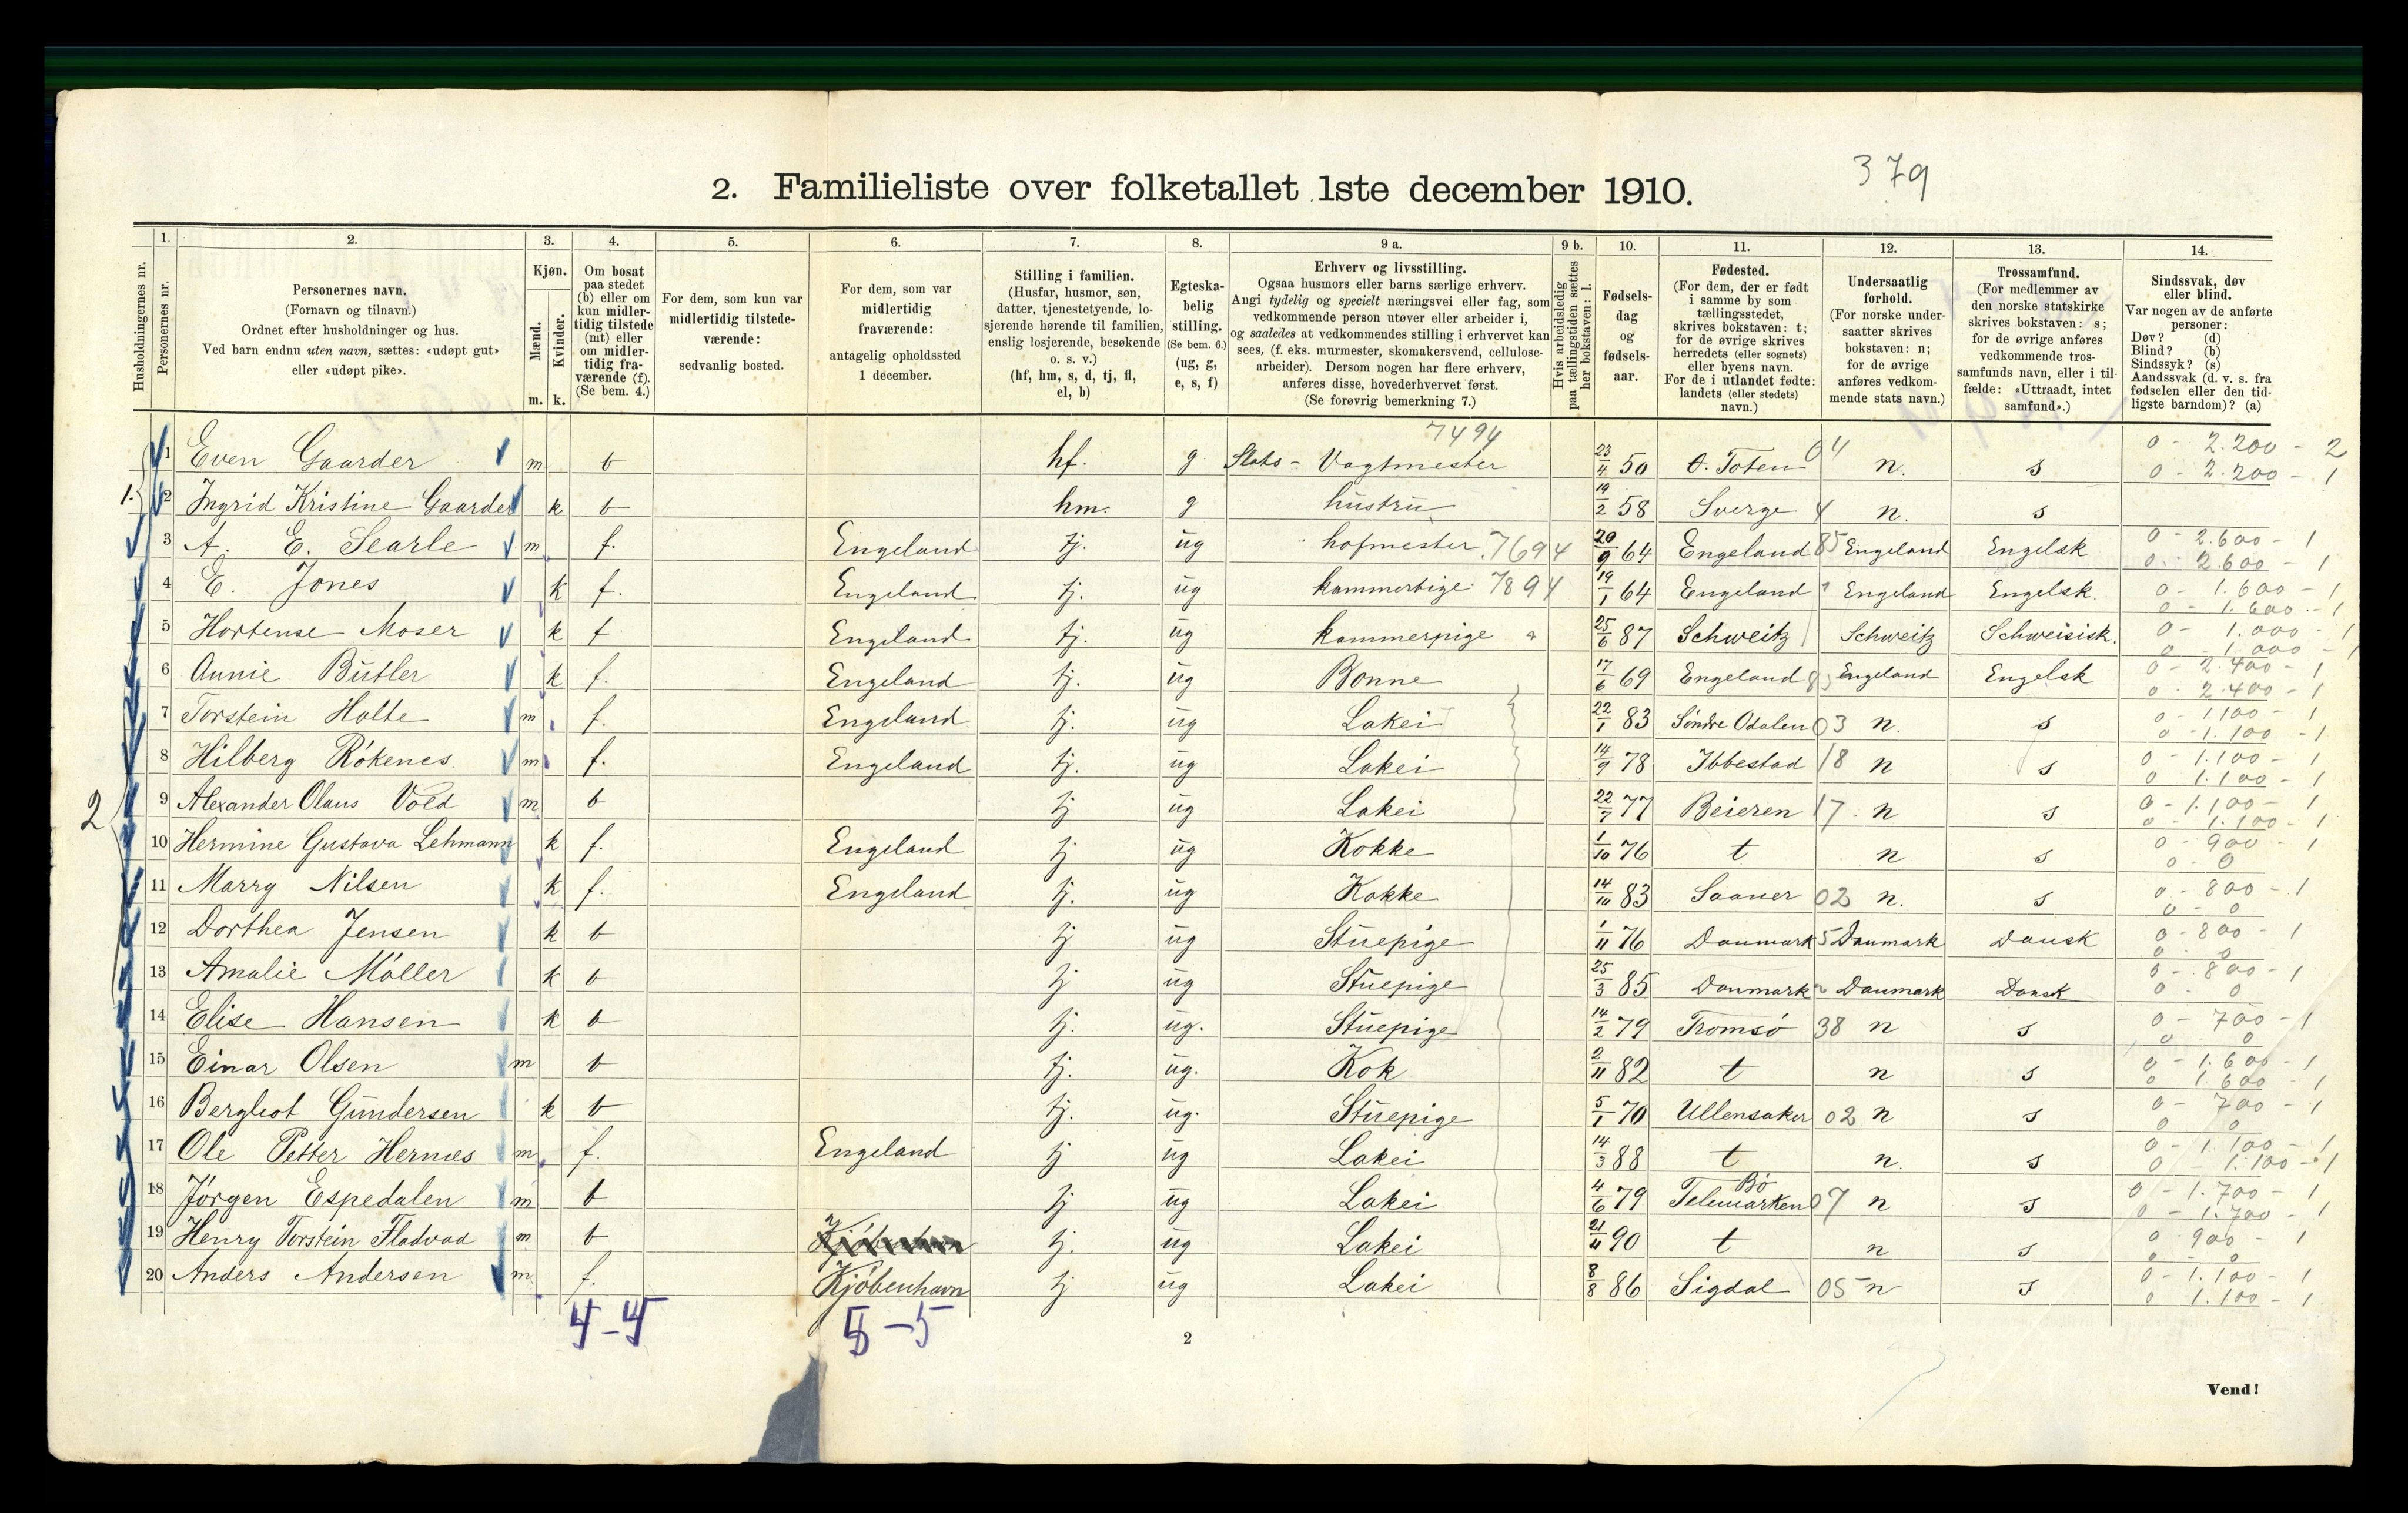 379
2. Familieliste over folketallet 1ste december 1910.
1. 2. 3. 4. 5. 6. 7. 8. 9 a. 9 b. 10. 11. 12. 13. 14.
Husholdningernes nr.
Personernes nr.
Personernes navn.
(Fornavn og tilnavn.)
Ordnet efter husholdninger og hus.
Ved barn endnu uten navn, sættes: «udøpt gut»
eller «udøpt pike».
Kjøn.
Mænd.
Kvinder.
m. k.
Om bosat
paa stedet
(b) eller om
kun midler-
tidig tilstede
(mt) eller
om midler-
tidig fra-
værende (f).
(Se bem. 4.)
For dem, som kun var
midlertidig tilstede-
værende:
sedvanlig bosted.
For dem, som var
midlertidig
fraværende:
antagelig opholdssted
1 december.
Stilling i familien.
(Husfar, husmor, søn,
datter, tjenestetyende, lo-
sjerende hørende til familien,
enslig losjerende, besøkende
o. s. v.)
(hf, hm, s, d, tj, fl,
el, b)
Egteska-
belig
stilling.
(Se bem. 6.)
(ug, g,
e, s, f)
Erhverv og livsstilling.
Ogsaa husmors eller barns særlige erhverv.
Angi tydelig og specielt næringsvei eller fag, som
vedkommende person utøver eller arbeider i,
og saaledes at vedkommendes stilling i erhvervet kan
sees, (f. eks. murmester, skomakersvend, cellulose-
arbeider). Dersom nogen har flere erhverv,
anføres disse, hovederhvervet først.
(Se forøvrig bemerkning 7.)
Hvis arbeidsledig
paa tællingstiden sættes
her bokstaven: l.
Fødsels-
dag
og
fødsels-
aar.
Fødested.
(For dem, der er født
i samme by som
tællingsstedet,
skrives bokstaven: t;
for de øvrige skrives
herredets (eller sognets)
eller byens navn.
For de i utlandet fødte:
landets (eller stedets)
navn.)
Undersaatlig
forhold.
(For norske under-
saatter skrives
bokstaven: n;
for de øvrige
anføres vedkom-
mende stats navn.)
Trossamfund.
(For medlemmer av
den norske statskirke
skrives bokstaven: s;
for de øvrige anføres
vedkommende tros-
samfunds navn, eller i til-
fælde: «Uttraadt, intet
samfund».)
Sindssvak, døv
eller blind.
Var nogen av de anførte
personer:
Døv? (d)
Blind? (b)
Sindssyk? (s)
Aandssvak (d. v. s. fra
fødselen eller den tid-
ligste barndom)? (a)
1. 1 Even Gaarder m b hf. g. Slots-Vagtmester 7494 23/4 50 Ø. Toten 04 n. s 0 - 2.200 - 2 0 - 2.200 - 1
2 Ingrid Kristine Gaarder k b hm. g hustru 19/2 58 Sverge 4 n. s
2 3 A. E. Searle m f. Engeland tj. ug hofmester 7694 20/9 64 Engeland 85 Engeland Engelsk 0 - 2.600 - 1 0 - 2.600 - 1
4 E. Jones k f. Engeland tj. ug kammerpige 7894 19/1 64 Engeland Engeland Engelsk. 0 - 1.600 - 1 0 - 1.600 - 1
5 Hortense Moser k f Engeland tj. ug kammerpige 25/6 87 Schweitz Schweitz Schweisisk. 0 - 1.000 - 1 0 - 1.000 - 1
6 Annie Butler k f. Engeland tj. ug Bonne 17/6 69 Engeland Engeland Engelsk 0 - 2.400 - 1 0 - 2.400 - 1
7 Torstein Holte m f. Engeland tj. ug Lakei 22/1 83 Søndre Odalen 03 n. s 0 - 1.100 - 1 0 - 1.100 - 1
8 Hilberg Rökenes m f. Engeland tj. ug Lakei 14/9 78 Ibbestad 18 n s 0 - 1.100 - 1 0 1.100 - 1
9 Alexander Olaus Vold m b tj ug Lakei 22/7 77 Beieren 17 n s 0 - 1.100 - 1 0 - 1.100 - 1
10 Hermine Gustava Lehmann k f. Engeland tj ug Kokke 1/10 76 t n s 0 - 900 - 1 0 - 0
11 Marry Nilsen k f. Engeland tj. ug Kokke 14/10 83 Saaner 02 n. s 0 - 800 - 1 0 - 0
12 Dorthea Jensen k b tj ug Stuepige 1/11 76 Danmark 5 Danmark Dansk 0 - 800 - 1 0 0
13 Amalie Möller k b tj ug Stuepige 25/3 85 Danmark Danmark Dansk 0 - 800 - 1 0 - 0
14 Elise Hansen k b tj. ug. Stuepige 14/2 79 Tromsø 38 n s 0 - 700 - 1 0 0
15 Einar Olsen m b tj. ug. Kok 2/11 82 t n s 0 - 1.600 - 1 0 1.600 - 1
16 Bergliot Gundersen k b tj. ug. Stuepige 5/1 70 Ullensaker 02 n s 0 - 700 - 1 0 0
17 Ole Petter Hernæs m f. Engeland tj ug Lakei 14/3 88 t n. s 0 - 1.100 - 1 0 - 1.100 - 1
18 Jörgen Espedalen m b tj ug Lakei 4/6 79 Bø Telemarken 07 n s 0 - 1.700 - 1 0 - 1.700 - 1
19 Henry Torstein Fladvad m b tj. ug Lakei 21/11 90 t n s 0 900 - 1 0 - 0
20 Anders Andersen m f. Kjöbenhavn tj ug Lakei 8/8 86 Sigdal 05 n s 0 - 1.100 - 1 0 1.100 - 1
4-4 5-5
2
Vend!